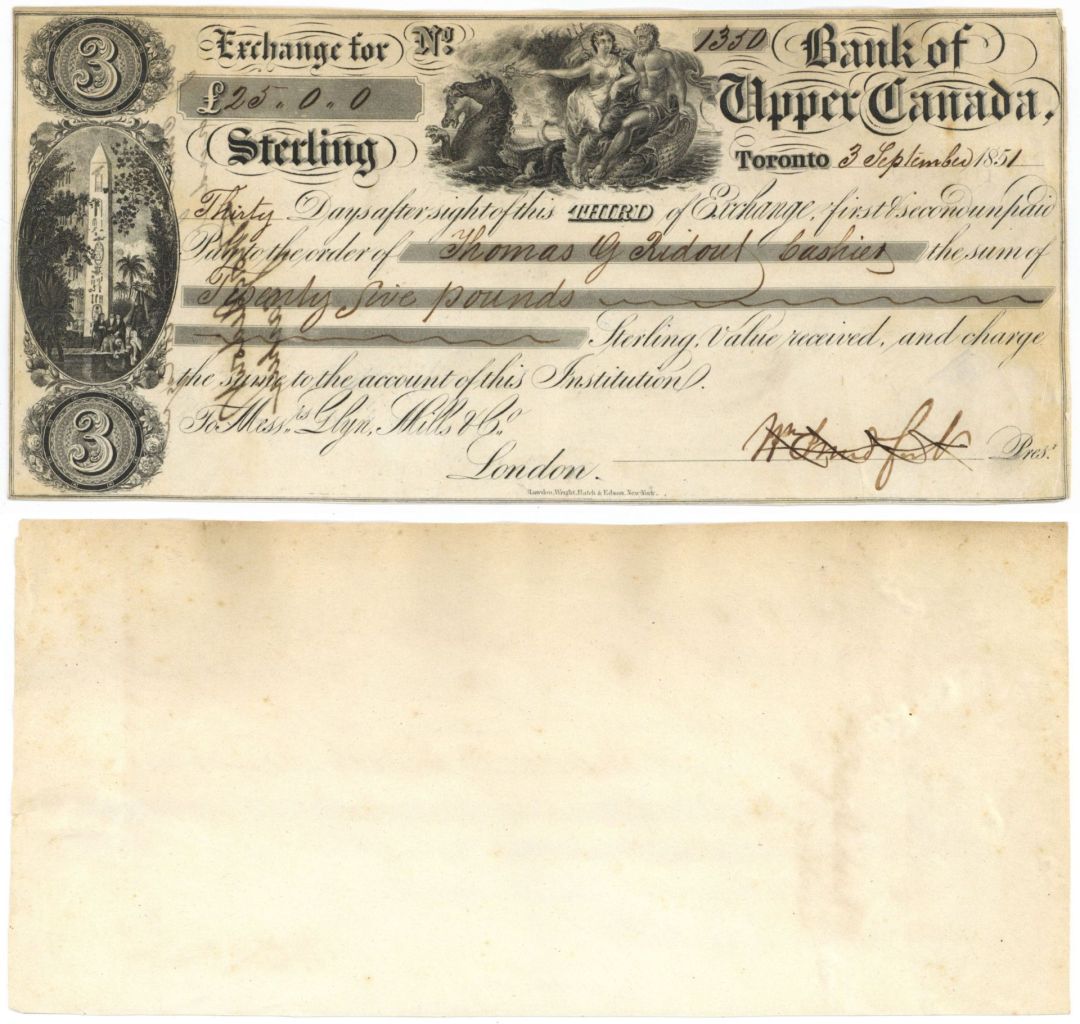 3
Exchange for Nº 1350 Bank of
£25.0.0 Upper Canada,
Sterling Toronto 3 September 1851
Thirty Days after sight of this THIRD of Exchange, first & second unpaid
Pay to the order of Thomas G Ridout Cashier the sum of
Twenty five pounds
Sterling, Value received, and charge
the same to the account of this Institution.
3
To Mess.rs Glyn, Mills & Co.
London. Pres.t
Rawdon, Wright, Hatch & Edson, New-York.